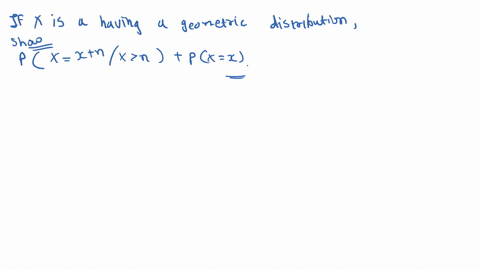 If X is a having a geometric distribution,
show
P(X = x+n / X > n) + P(X = x).